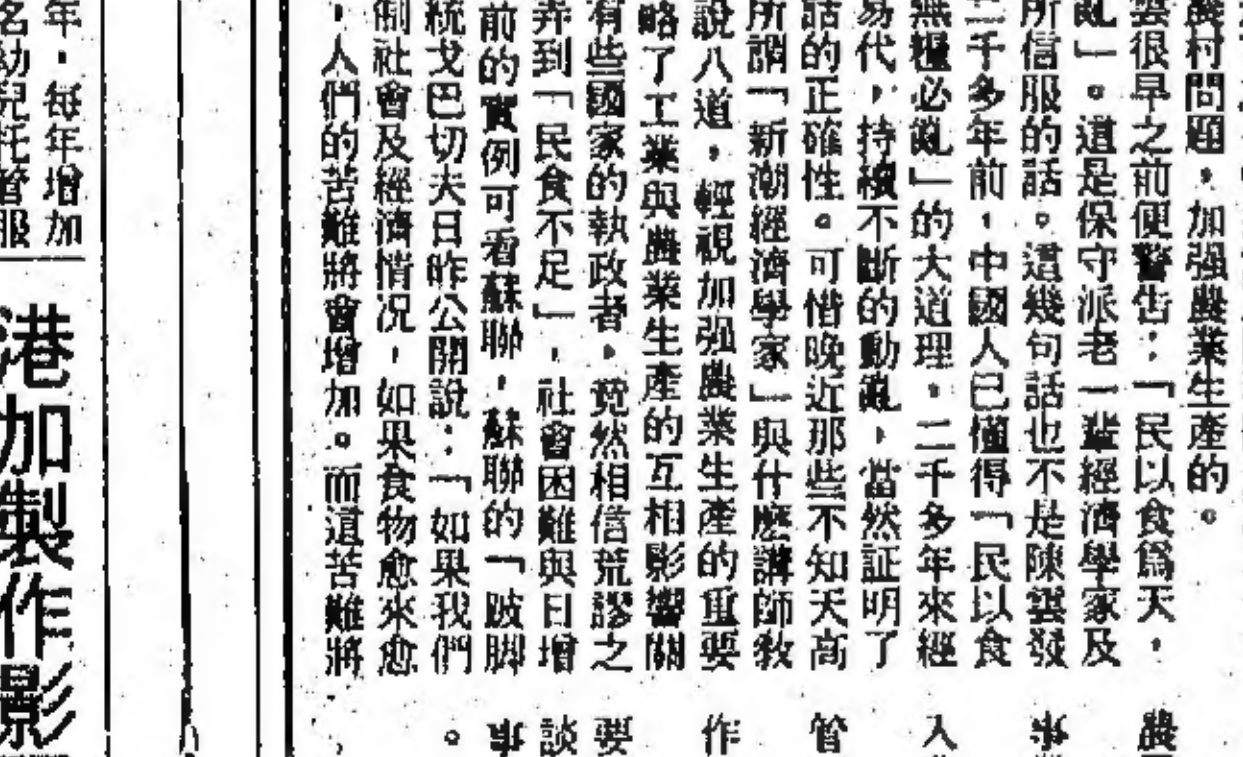 農村問題，加强農業生產的。
雲很早之前便警告：「民以食爲天，
亂」。這是保守派老一輩經濟學家及
所信服的話。這幾句話也不是陳雲發
二千多年前，中國人已懂得「民以食
無糧必亂」的大道理，二千多年來經
易代，持續不斷的動亂，當然証明了
話的正確性。可惜晚近那些不知天高
所謂「新潮經濟學家」與什麽講師敎
說八道，輕視加强農業生產的重要
略了工業與農業生產的互相影響關
有些國家的執政者，竟然相信荒謬之
弄到「民食不足」，社會困難與日增
前的實例可看蘇聯，蘇聯的「跛脚
統戈巴切夫日昨公開說：「如果我們
側社會及經濟情況，如果食物愈來愈
，人們的苦難將會增加。而這苦難將
農
事
入
管
作
要
談
事
。
年，每年增加
名幼兒托管服
港加製作影